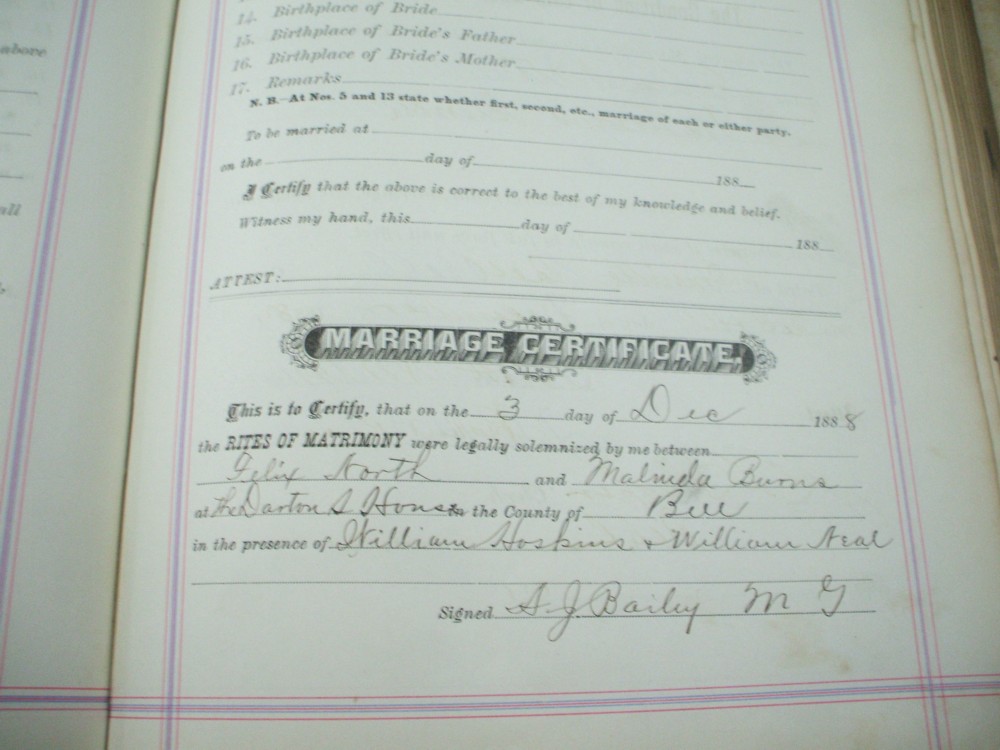 14. Birthplace of Bride
15. Birthplace of Bride's Father
16. Birthplace of Bride's Mother
17. Remarks
N. B.—At Nos. 5 and 13 state whether first, second, etc., marriage of each or either party.
To be married at
on the day of 188
I Certify that the above is correct to the best of my knowledge and belief.
Witness my hand, this day of 188
ATTEST:
MARRIAGE CERTIFICATE.
This is to Certify, that on the 3 day of Dec 1888
the RITES OF MATRIMONY were legally solemnized by me between
Felix North and Malinda Burns
at the S House in the County of Bell
in the presence of William Hoskins & William Neal
Signed A. J. Bailey M G
above
all